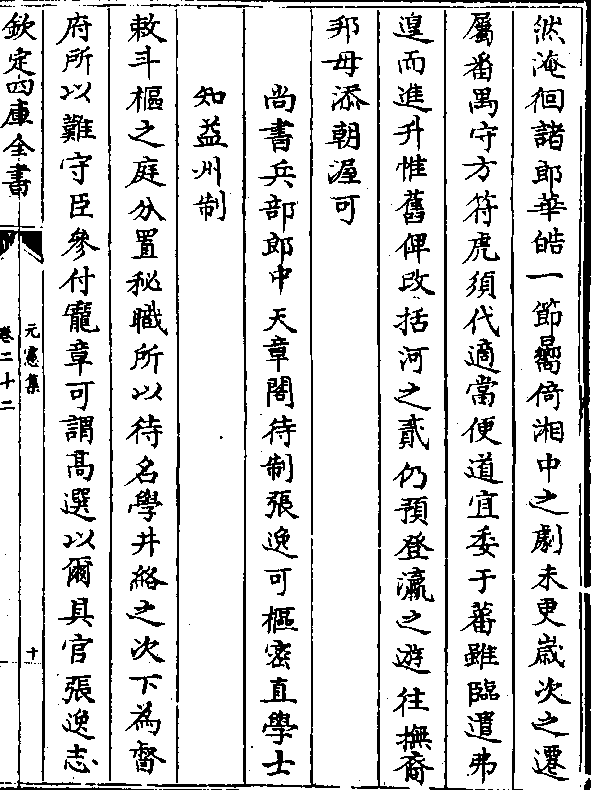 然淹徊諸郎華皓一節曏倚湘中之劇未更嵗次之遷
屬番禺守方符虎須代適當便道宜委于蕃雖臨遣弗
遑而進升惟舊俾改括河之貳仍預登瀛之遊往撫裔
邦毋添朝渥可
尚書兵部郎中天章閣待制張逸可樞密直學士
知益州制
敕斗樞之庭分置秘職所以待名學井絡之次下為督
府所以難守臣參付寵章可謂髙選以爾具官張逸志
欽定四庫全書
元憲集
卷二十二
十